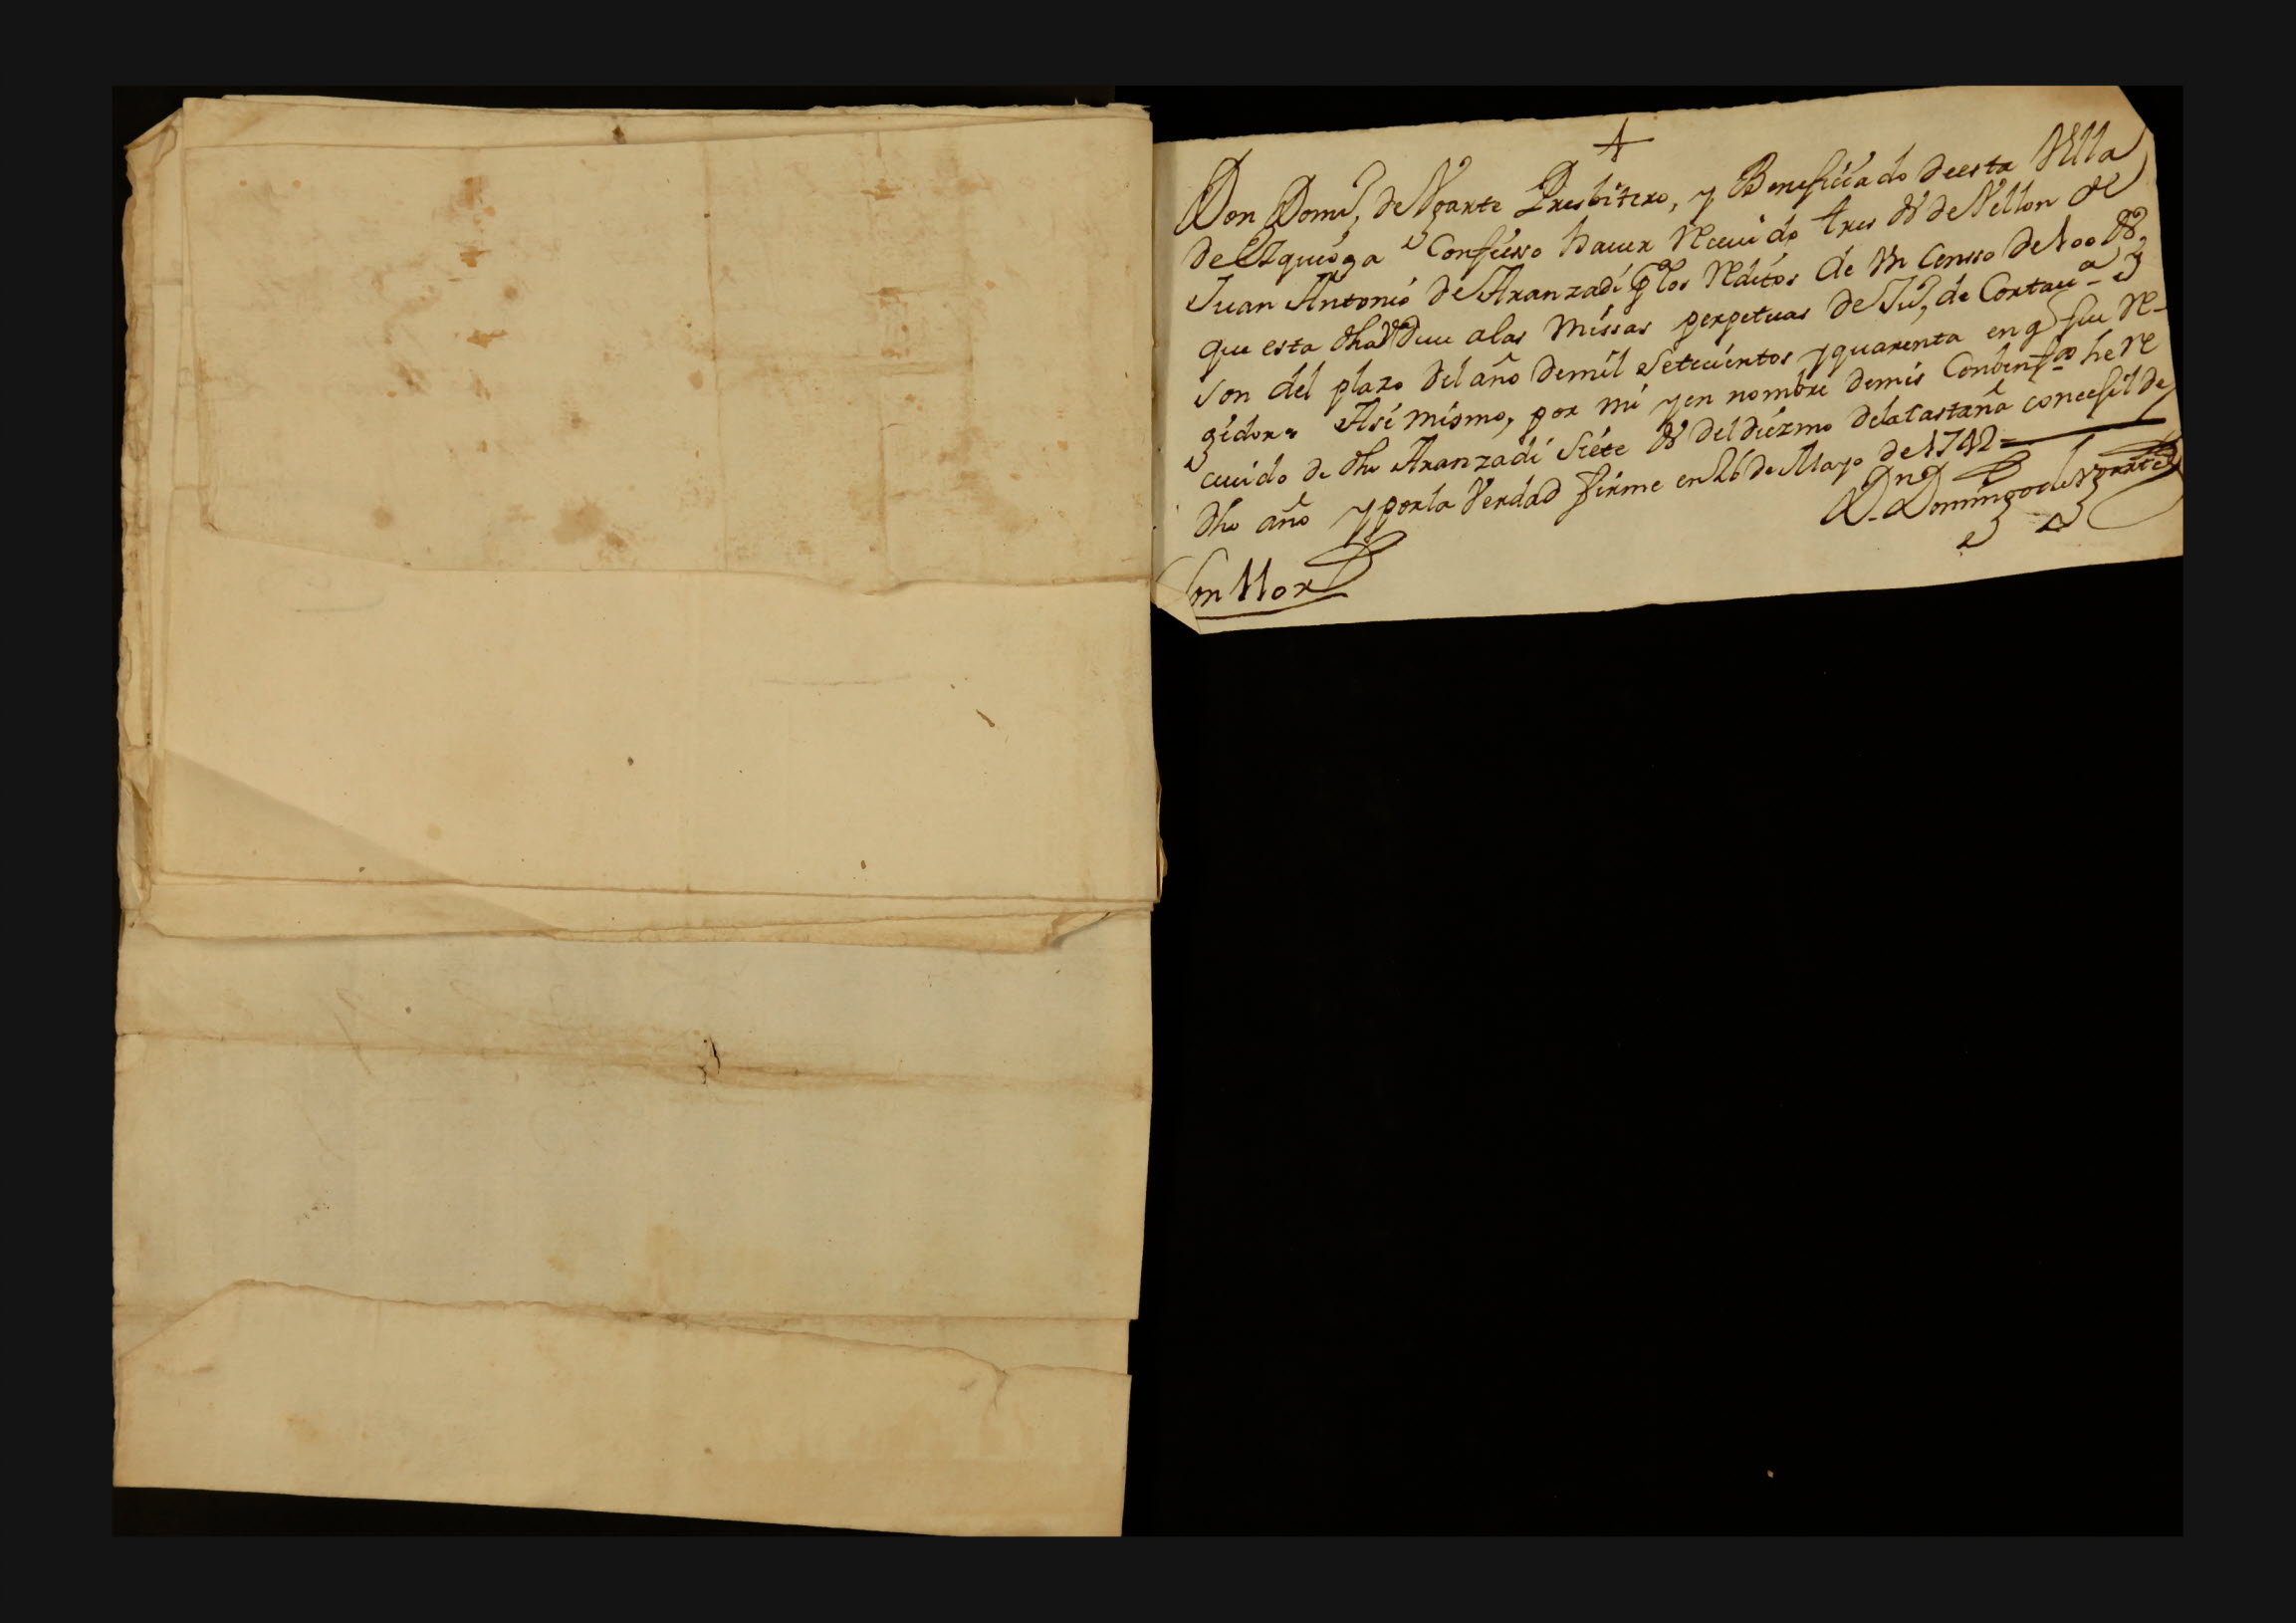 Don Domº, de Vgarte Presbitero, y Beneficiado deesta Villa
de Ezquioga Confiesso hauer Receuido tres ds de Vellon de
Juan Antonio de Aranzadi p los Reditos de Vn Censso de 100 ds,
que esta dha Vª deue alas Missas perpetuas de Juº, de Cortauª
son del plazo del año demil Setecientos y quarenta en q fue Re-
gidor= Asi mismo, por mi y en nombre demis he Re
ceuido de dho Aranzadi Siete ds del diezmo dela Castaña de
dho año y porla Verdad firme en 26 de Mayo de 1742=
Dn Domingo de Vgarte
Son 110 r